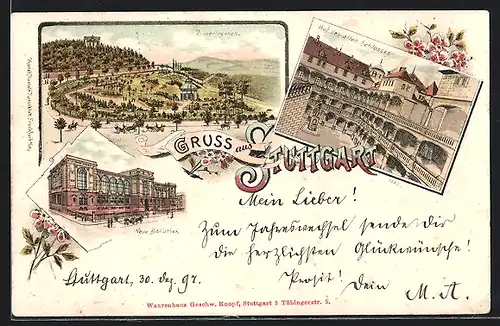 Hof des alten Schlosses
GRUSS aus STUTTGART
Neue Bibliothek
Mein Lieber!
Zum Jahreswechsel sende dir
die herzlichsten Glückwünsche!
Prosit! Dein
Stuttgart, 30. dez. 97.
M. A.
Waarenhaus Geschw. Knopf, Stuttgart 3 Tübingerstr. 5.